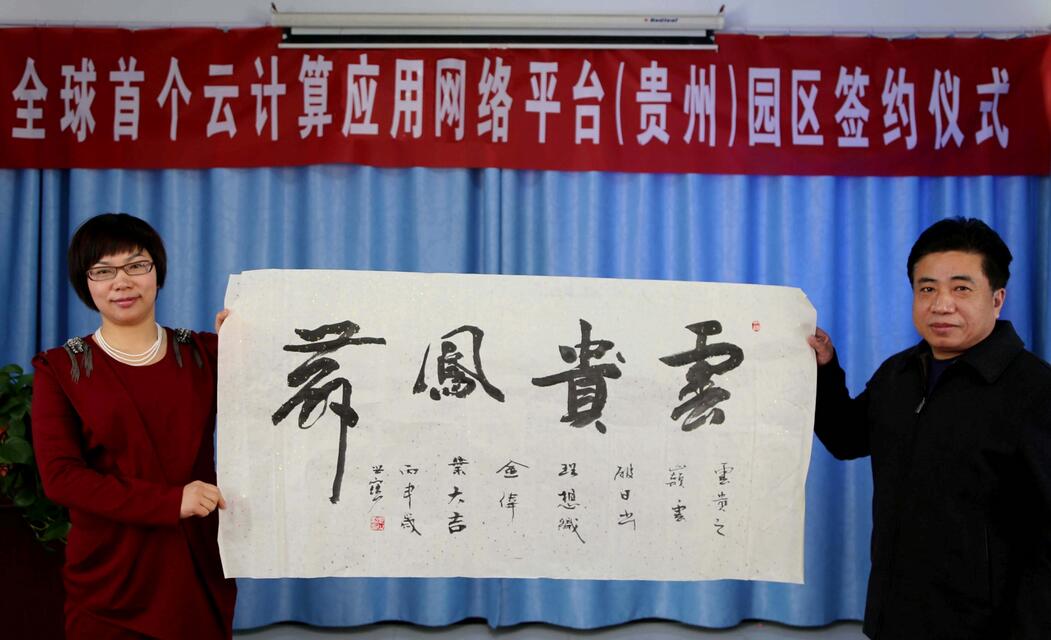 Redleaf
全球首个云计算应用网络平台(贵州)园区签约仪式
雲貴鳳舞
雲貴之
巔雲
破日出
理想織
金偉
業大吉
丙申歲